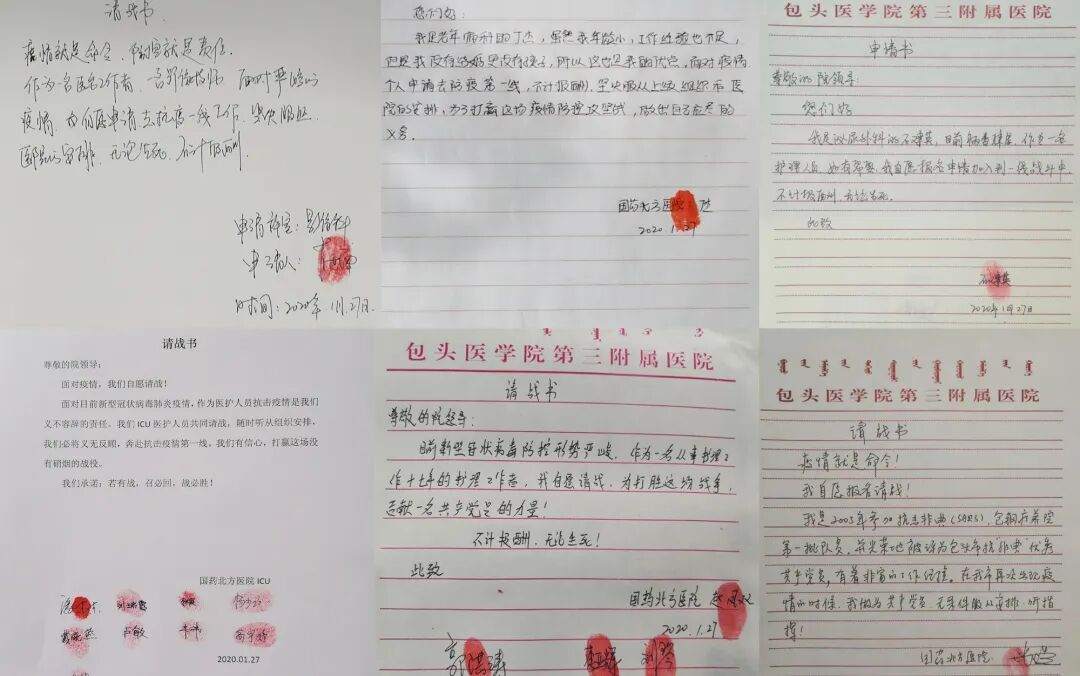 请战书
疫情就是命令，防控就是责任。
作为一名医务工作者，
面对严峻的
疫情，我们 申请去抗疫一线工作，坚决服从
医院的安排，无论生死，不计报酬。
申请科室：
申请人：
时间：2020年1月27日.
您们好：
我是老年病科的丁杰，虽然我年龄小，工作经验也不足，
但是我没有结婚更没有孩子，所以这也是我的优点，面对疫情
个人申请去防疫第一线，不计报酬。坚决服从上级组织和医
院的安排，为了打赢这场疫情防控攻坚战，做出自己应尽的
义务。
国药北方医院
2020.1.27
包头医学院第三附属医院
申请书
尊敬的院领导：
您们好
我是泌尿外科的 ，目前病毒肆虐，作为一名
护理人员，如有需要，我自愿报名申请加入到一线战斗中，
不计报酬，无论生死。
此致
2020年1月27日
请战书
尊敬的院领导：
面对疫情，我们自愿请战！
面对目前新型冠状病毒肺炎疫情，作为医护人员抗击疫情是我们
义不容辞的责任。我们 ICU 医护人员共同请战，随时听从组织安排，
我们必将义无反顾，奔赴抗击疫情第一线，我们有信心，打赢这场没
有硝烟的战役。
我们承诺：若有战，召必回，战必胜！
国药北方医院 ICU
2020.01.27
包头医学院第三附属医院
请战书
尊敬的院领导：
目前新型冠状病毒防控形势严峻，作为一名从事护理工
作十七年的护理工作者，我自愿请战，为打胜这场战争，
贡献一名共产党员的力量！
不计报酬、无论生死！
此致
国药北方医院
2020.1.27
包头医学院第三附属医院
请战书
疫情就是命令！
我自愿报名请战！
我是2003年参加抗击非典（SARS），包钢
第一批队员，并光荣地被评为包头市抗"非典"优秀
共产党员，有着丰富的工作经验，在我市再次出现疫
情的时候，我做为共产党员，无条件服从安排，听指
挥！
国药北方医院